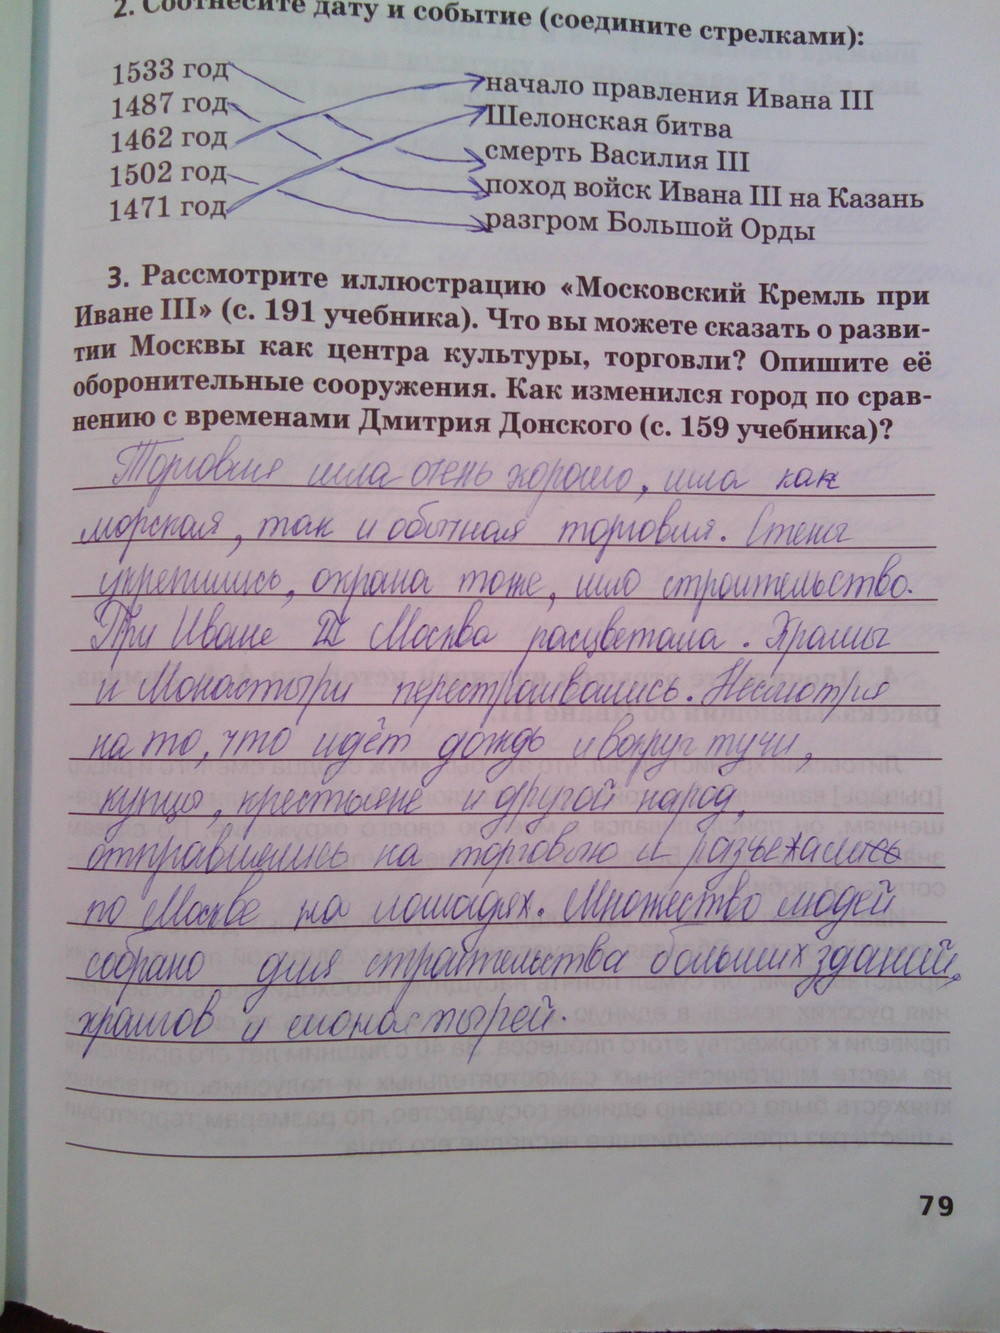 2. Соотнесите дату и событие (соедините стрелками):
1533 год
1487 год
1462 год
1502 год
1471 год
начало правления Ивана III
Шелонская битва
смерть Василия III
поход войск Ивана III на Казань
разгром Большой Орды
3. Рассмотрите иллюстрацию «Московский Кремль при
Иване III» (с. 191 учебника). Что вы можете сказать о разви-
тии Москвы как центра культуры, торговли? Опишите её
оборонительные сооружения. Как изменился город по срав-
нению с временами Дмитрия Донского (с. 159 учебника)?
Торговля шла очень хорошо, шла как
морская, так и обычная торговля. Стены
укрепились, охрана тоже, шло строительство.
При Иване III Москва расцветала. Храмы
и Монастыри перестраивались. Несмотря
на то, что идёт дождь и вокруг тучи,
купцы, крестьяне и другой народ,
отправились на торговлю и разъежались
по Москве на лошадях. Множество людей
собрано для строительства больших зданий,
храмов и монастырей.
79